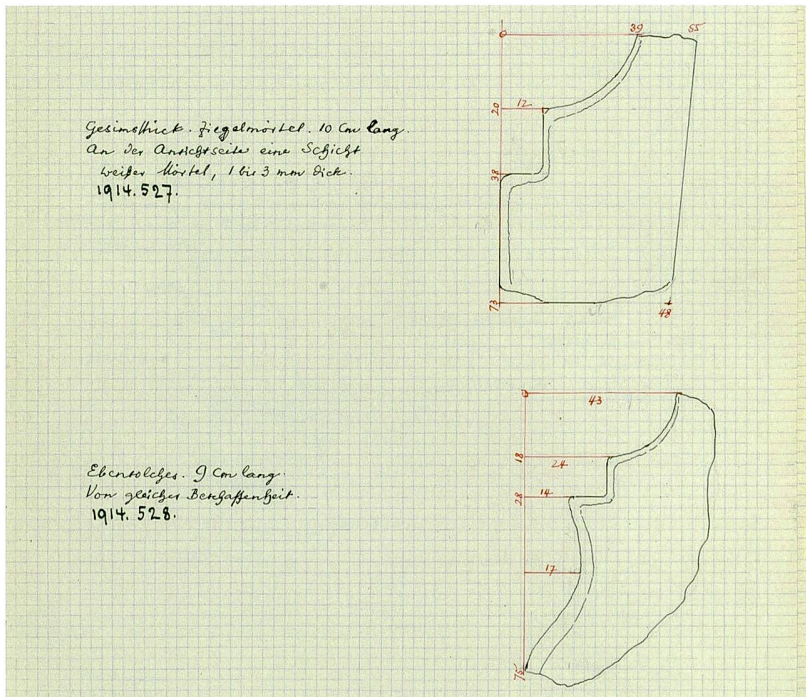 0 39 55
12
20
Gesimsstück. Ziegelmörtel. 10 Cm lang.
An der Ansichtseite eine Schicht
weißer Mörtel, 1 bis 3 mm dick.
1914.527.
38
73
48
0
43
18
24
Ebensolches. 9 Cm lang.
Von gleicher Beschaffenheit.
1914. 528.
28
14
17
75